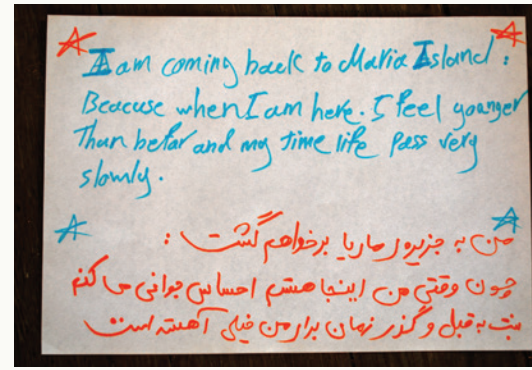 I am coming back to Maria Island :
Beacuse when I am here. I feel younger
Than befor and my time life pass very
slowly.
من به جزیره ماریا برخواهم گشت :
چون وقتی من اینجا هستم احساس جوانی می کنم
نسبت به قبل و گذر زمان برای من خیلی آهسته است